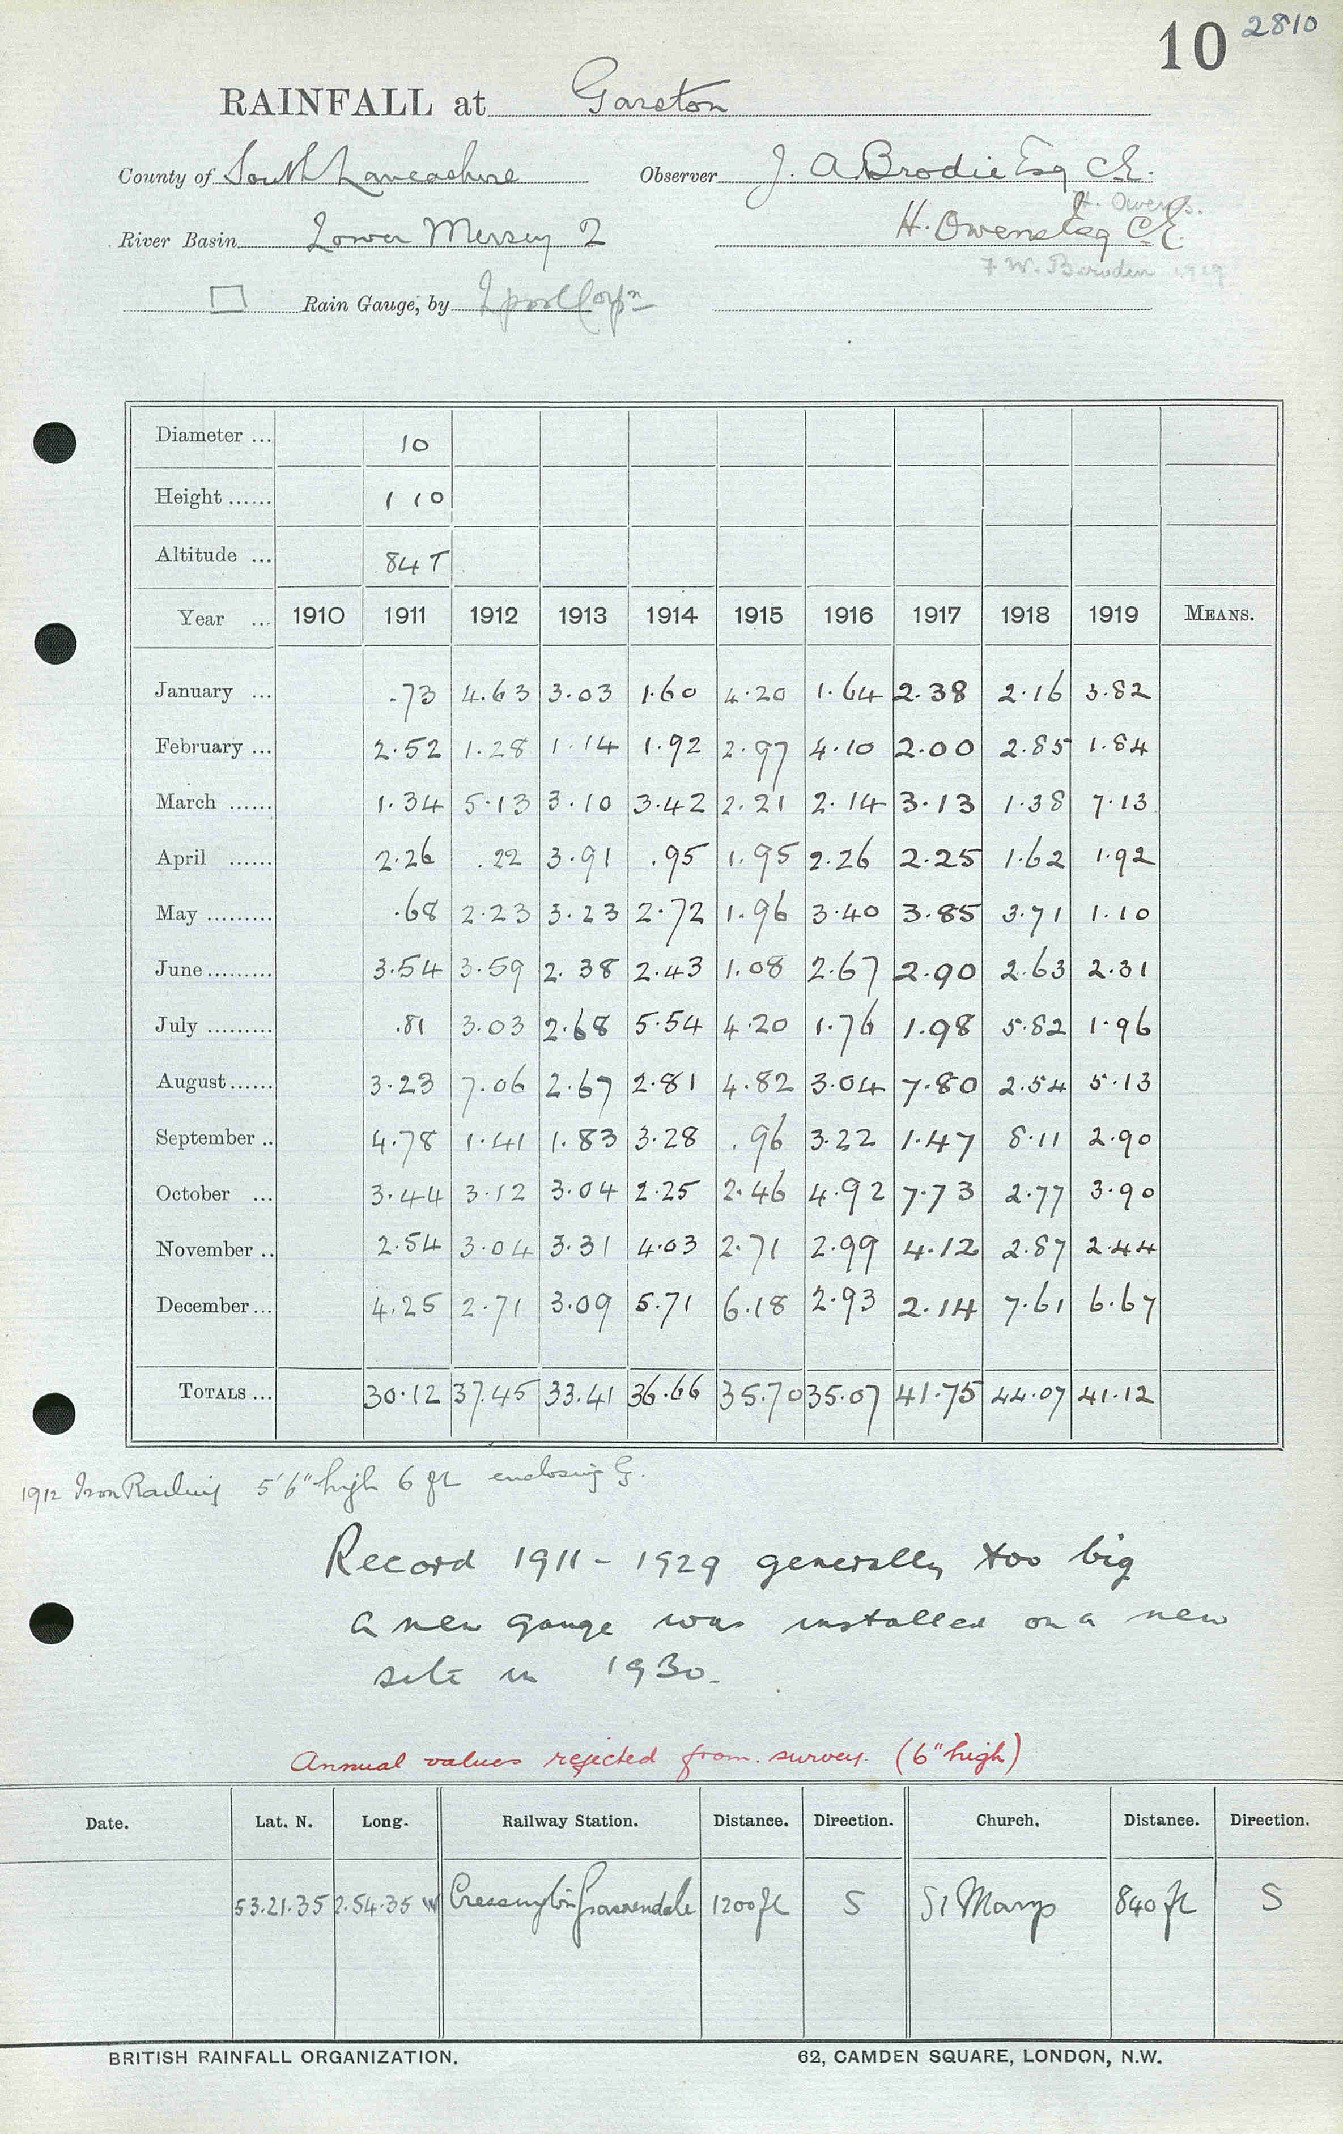 10 2810
RAINFALL at Garston
County of South Lancashire Observer J. A Brodie Esq CE.
H. Owens.
River Basin Lower Mersey 2 H. Owens Esq CE.
F W. 1929
Rain Gauge, by Lpool Corpn
Diameter ... 10
Height ...... 1 10
Altitude ... 84 T
Year ... 1910 1911 1912 1913 1914 1915 1916 1917 1918 1919 MEANS.
January ... .73 4.63 3.03 1.60 4.20 1.64 2.38 2.16 3.82
February ... 2.52 1.28 1.14 1.92 2.97 4.10 2.00 2.85 1.84
March ...... 1.34 5.13 3.10 3.42 2.21 2.14 3.13 1.38 7.13
April ...... 2.26 .22 3.91 .95 1.95 2.26 2.25 1.62 1.92
May ......... .68 2.23 3.23 2.72 1.96 3.40 3.85 3.71 1.10
June ......... 3.54 3.59 2.38 2.43 1.08 2.67 2.90 2.63 2.31
July ......... .81 3.03 2.68 5.54 4.20 1.76 1.98 5.82 1.96
August ...... 3.23 7.06 2.67 2.81 4.82 3.04 7.80 2.54 5.13
September .. 4.78 1.41 1.83 3.28 .96 3.22 1.47 8.11 2.90
October ... 3.44 3.12 3.04 2.25 2.46 4.92 7.73 2.77 3.90
November .. 2.54 3.04 3.31 4.03 2.71 2.99 4.12 2.87 2.44
December ... 4.25 2.71 3.09 5.71 6.18 2.93 2.14 7.61 6.67
TOTALS ... 30.12 37.45 33.41 36.66 35.70 35.07 41.75 44.07 41.12
1912 Iron Railing 5'6" high 6 ft enclosing G.
Record 1911 - 1929 generally too big
a new gauge was installed on a new
site in 1930.
Annual values rejected from survey. (6" high)
Date. Lat. N. Long. Railway Station. Distance. Direction. Church. Distance. Direction.
53.21.35 2.54.35 W Cressington Grassendale 1200 ft S St Marys 840 ft S
BRITISH RAINFALL ORGANIZATION. 62, CAMDEN SQUARE, LONDON, N.W.